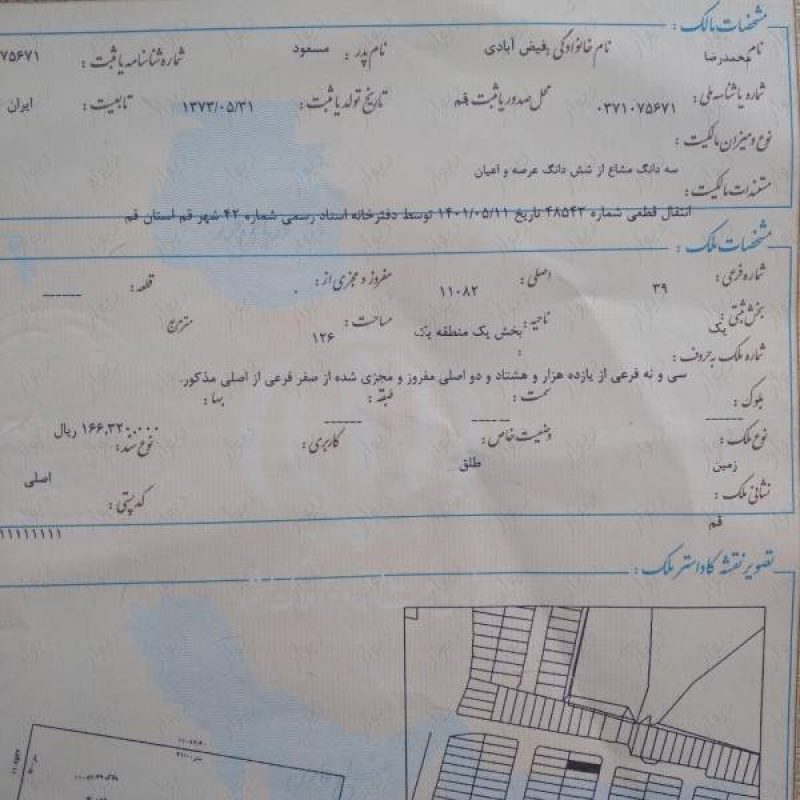 مشخصات مالک :
نام : محمدرضا نام خانوادگی : فیض آبادی نام پدر : مسعود شماره شناسنامه یا ثبت : ۷۵۶۷۱
شماره یا شناسه ملی : ۰۳۷۱۰۷۵۶۷۱ محل صدور یا ثبت : قم تاریخ تولد یا ثبت : ۱۳۷۳/۰۵/۳۱ تابعیت : ایران
نوع و میزان مالکیت :
سه دانگ مشاع از شش دانگ عرصه و اعیان
مستندات مالکیت :
انتقال قطعی شماره ۴۸۵۴۳ تاریخ ۱۴۰۱/۰۵/۱۱ توسط دفترخانه اسناد رسمی شماره ۴۲ شهر قم استان قم
مشخصات ملک :
شماره فرعی : ۳۹ اصلی : ۱۱۰۸۲ مفروز و مجزی از : ۰ قطعه : ------
بخش ثبتی : یک ناحیه : بخش یک منطقه یک مساحت : ۱۲۶ مترمربع
شماره ملک به حروف :
سی و نه فرعی از یازده هزار و هشتاد و دو اصلی مفروز و مجزی شده از صفر فرعی از اصلی مذکور.
بلوک : ------ سمت : ------ طبقه : ------ بها : ۱۶۶,۳۲۰,۰۰۰ ریال
نوع ملک : زمین وضعیت خاص : طلق کاربری : نوع سند : اصلی
نشانی ملک : قم کد پستی : ۱۱۱۱۱۱۱۱۱
تصویر نقشه کاداستر ملک :